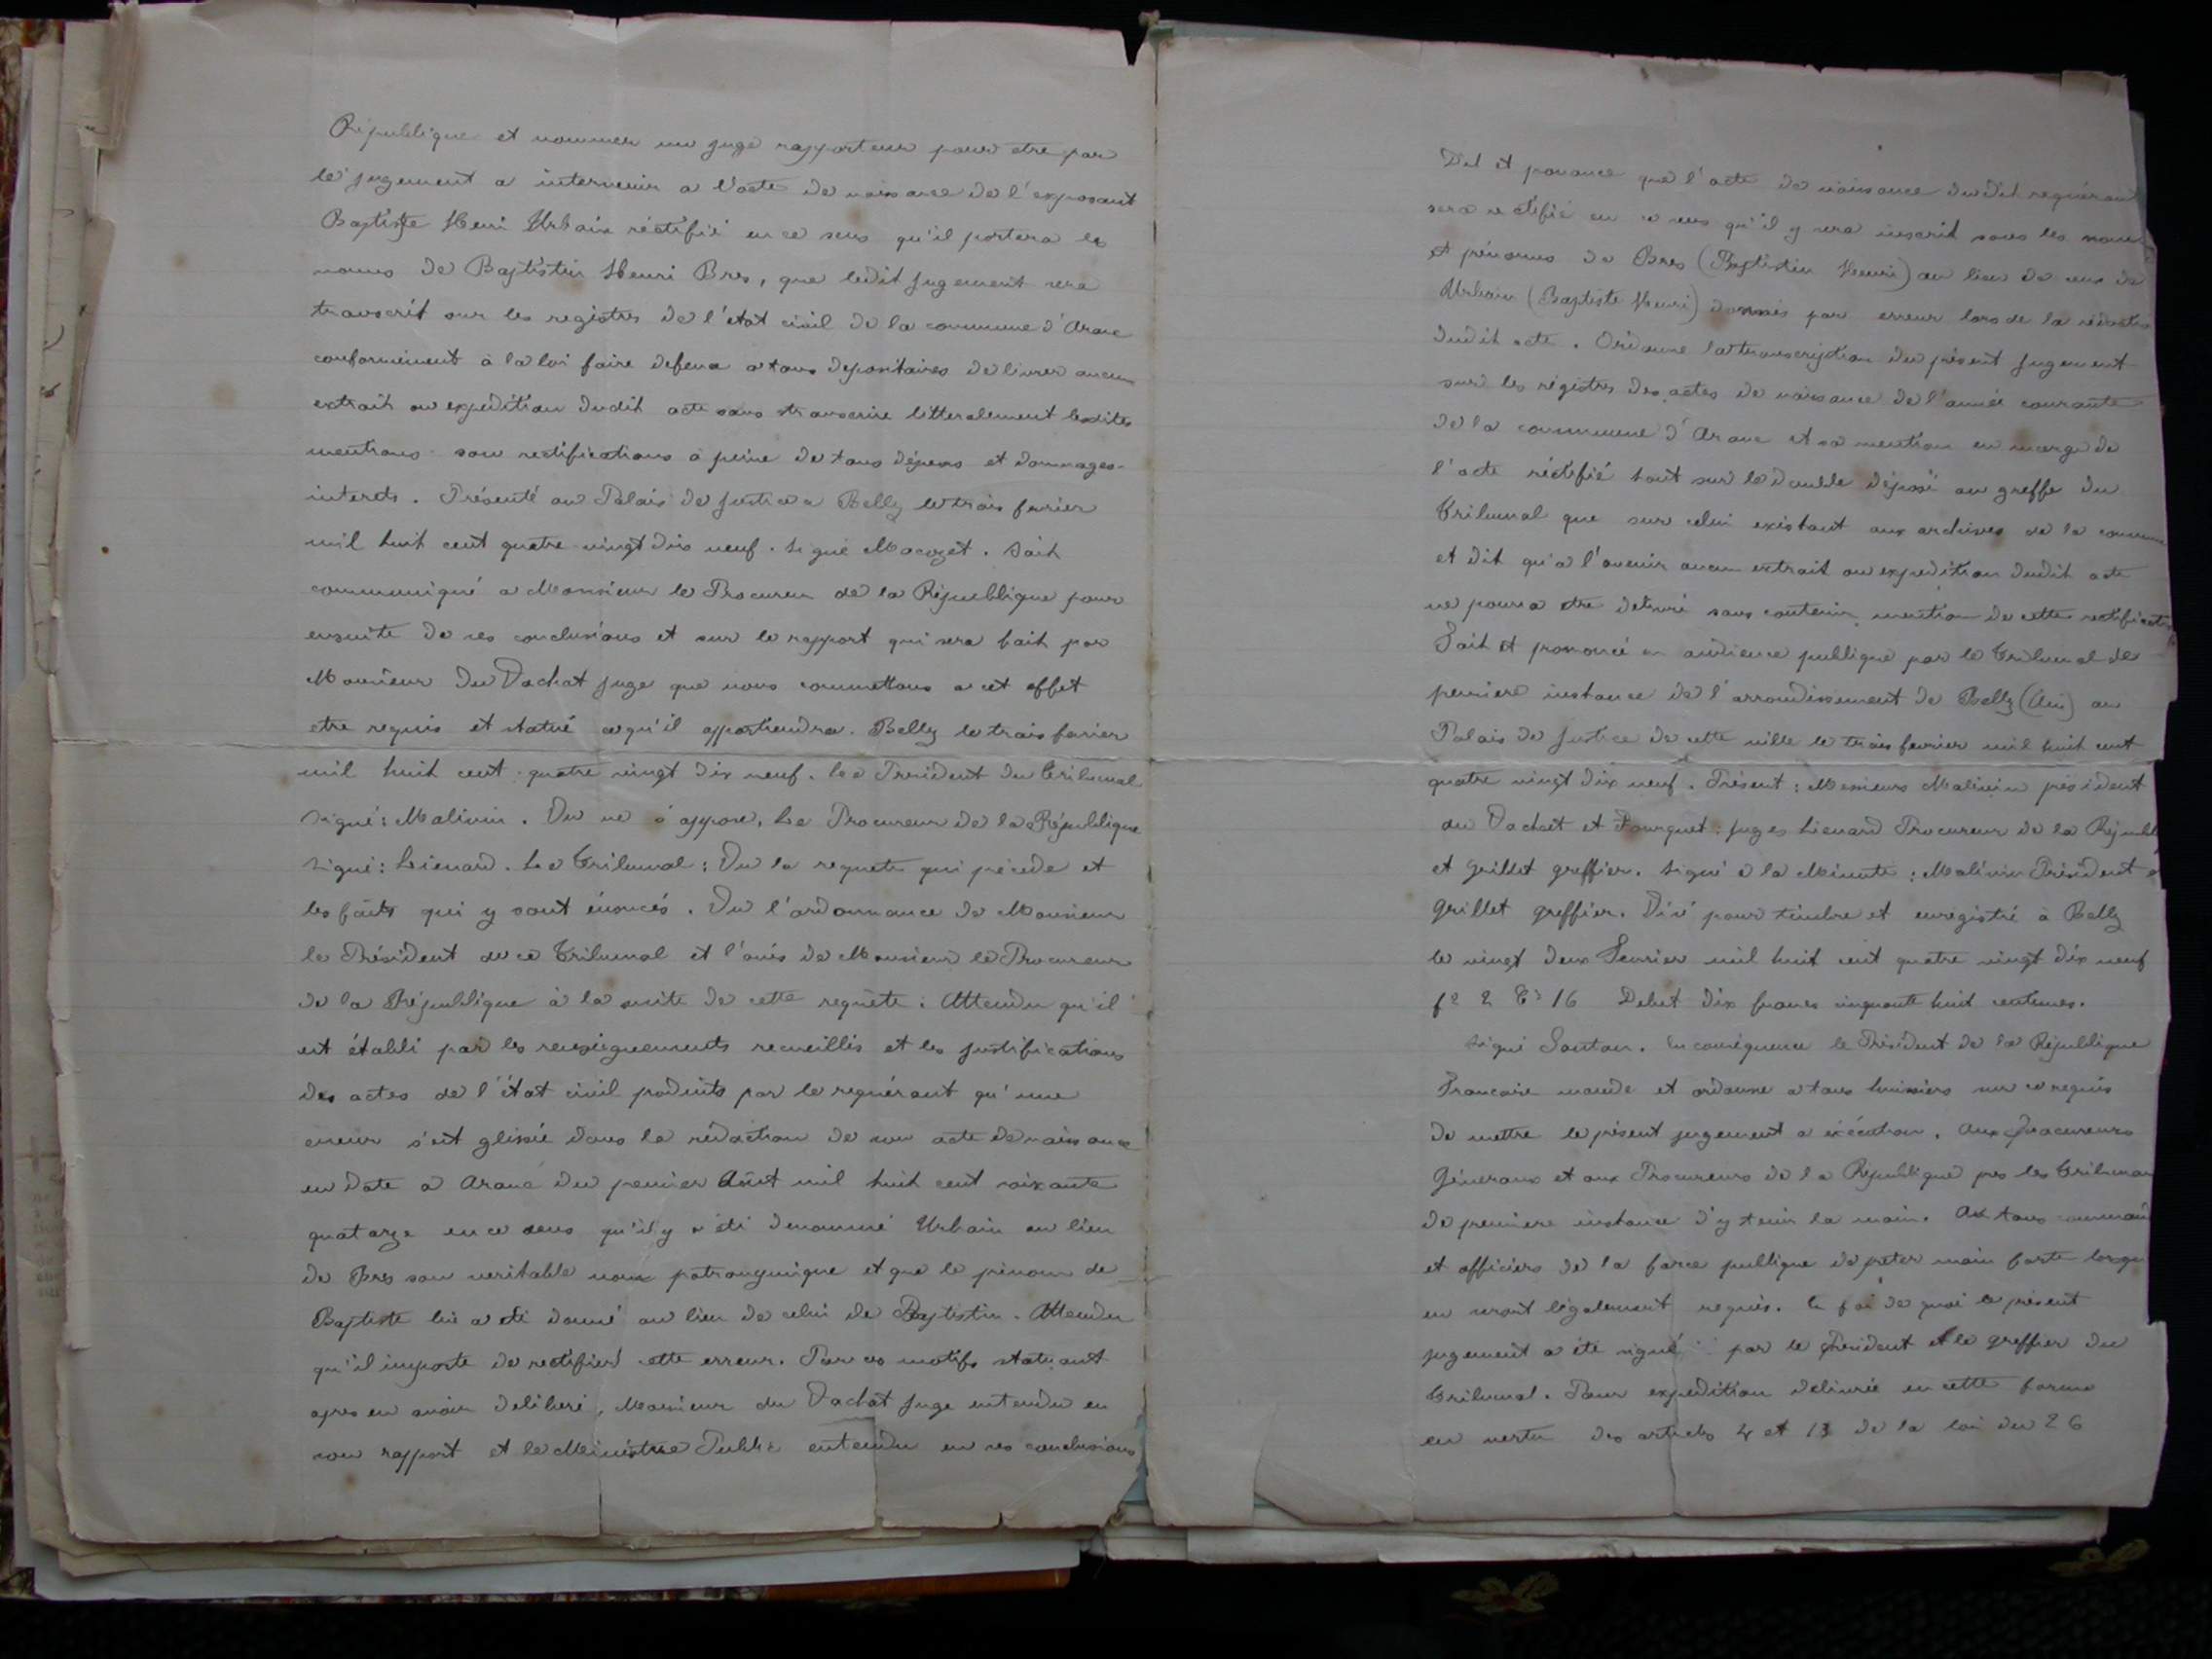 République et nommer un juge rapporteur pour etre par
le jugement a intervenir a l'acte de naissance de l'exposant
Baptiste Henri Urbain réctifié en ce sens qu'il portera les
noms de Baptistin Henri Bres, que ledit jugement sera
transcrit sur les registres de l'etat civil de la commune d'Aranc
conformément à la loi faire defense a tous depositaires delivrer aucun
extrait ou expedition dudit acte sans transcrire litteralement lesdites
mentions sou rectifications à peine de tous dépens et dommages-
interets. Présenté au Palais de Justice a Belly le trois fevrier
mil huit cent quatre-vingt dix neuf. Signé Macozet. Soit
communiqué a Monsieur le Procureur de la République pour
ensuite de ses conclusions et sur le rapport qui sera fait par
Monsieur Du Vachat juge que nous commettons a cet effet
etre requis et statué ce qu'il appartiendra. Belly le trois fevrier
mil huit cent quatre vingt dix neuf. Le President du Tribunal
signé: Malinin. Vu ne s'oppose. Le Procureur de la République
signé: Lienard. Le Tribunal: Vu la requete qui précede et
les faits qui y sont énoncés. Vu l'ordonnance de Monsieur
le Président de ce Tribunal et l'avis de Monsieur le Procureur
de la République à la suite de cette requête: Attendu qu'il
est établi par les renseignements recueillis et les justifications
des actes de l'état civil produits par le requérant qu'une
erreur s'est glissée dans la rédaction de son acte de naissance
en date a Aranc du premier Août mil huit cent soixante
quatorze en ce sens qu'il y a été denommé Urbain au lieu
de Bres son veritable nom patronymique et que le prénom de
Baptiste lui a été donné au lieu de celui de Baptistin. Attendu
qu'il importe de rectifier cette erreur. Par ces motifs statuant
apres en avoir deliberé, Monsieur du Vachat Juge entendu en
son rapport et le Ministre Public entendu en ses conclusions
Dit et prononce que l'acte de naissance dudit requérant
sera rectifié en ce sens qu'il y sera inscrit sous les noms
et prénoms de Bres (Baptistin Henri) au lieu de ceux de
Urbain (Baptiste Henri) donnés par erreur lors de la rédaction
dudit acte. Ordonne la transcription du présent jugement
sur les régistres des actes de naissance de l'année courante
de la commune d'Aranc et sa mention en marge de
l'acte réctifié tout sur le double déposé au greffe du
Tribunal que sur celui existant aux archives de la commune
et dit qu'a l'avenir aucun extrait ou expedition dudit acte
ne pourra etre delivré sans contenir mention de cette rectification
Fait et prononcé en audience publique par le Tribunal de
premiere instance de l'arrondissement de Belly (Ain) au
Palais de Justice de cette ville le trois fevrier mil huit cent
quatre vingt dix neuf. Présent: Messieurs Malinin président
du Vachat et Fourquet: juges Lienard Procureur de la Républ
et Grillet greffier. Signé à la Minute: Malinin Président
Grillet greffier. Visé pour timbre et enregistré à Belly
le vingt deux Fevrier mil huit cent quatre vingt dix neuf
f° 2 C° 16 Debet dix francs cinquante huit centimes.
Signé Santan. En conséquence le Président de la République
Francaise mande et ordonne a tous huissiers sur ce requis
de mettre le présent jugement a exécution. Aux Procureurs
Généraux et aux Procureurs de la République pres les Tribunaux
de premiere instance d'y tenir la main. A tous comman
et officiers de la force publique de preter main forte lorsqu
en seront légalement requis. En foi de quoi le présent
jugement a été signé par le President et le Greffier du
Tribunal. Pour expedition delivrée en cette forme
en vertu des articles 4 et 13 de la loi du 26